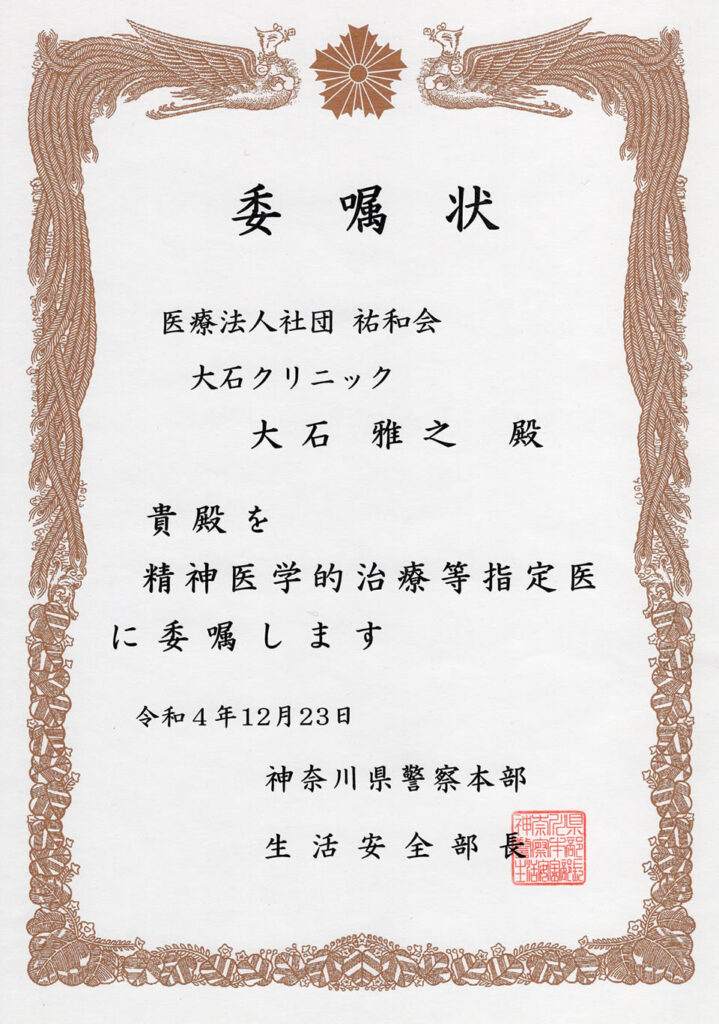 委嘱状
医療法人社団 祐和会
大石クリニック
大石 雅之 殿
貴殿を
精神医学的治療等指定医
に委嘱します
令和4年12月23日
神奈川県警察本部
生活安全部長